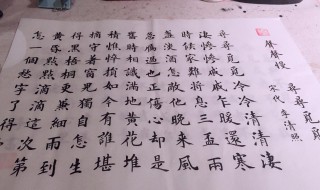 聲聲慢
宋代 李清照
尋尋覓覓冷冷清清淒
淒慘慘戚戚乍暖還寒
時候最難將息三盃兩
盞淡酒怎敵他晚來風
急雁過也正傷心却是
舊時相識滿地黃花堆
積憔悴損如今有誰堪
摘守着窗兒獨自怎生
得黑梧桐更兼細雨到
黃昏點點滴滴這次第
怎一個愁字了得